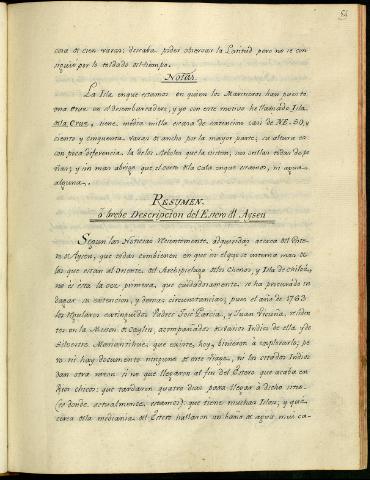 cosa de cien varas: deseaba poder observar la Latitud pero no se con
siguió por lo toldado del tiempo.
Notas.
La Isla en que estamos en quien los Marineros han puesto
una Cruz en el desembarcadero, y yo con este motivo he llamado Isla
de la Cruz, tiene media milla escasa de extencion casi de NE-SO, y
ciento y cinquenta varas de ancho por la mayor parte; su altura es
con poca diferencia la de los Arboles que la visten; sus orillas todas de pe
ñas; y sin mas abrigo que el corto de la cala en que estamos, ni agua
alguna.
RESUMEN.
ó brebe Descripcion del Estero de Aysen
Segun las Noticias recientemente adquiridas acerca del Este-
ro de Aysen, que todas combienen en que es el que se interna mas de
los que estan al Oriente del Archipielago de los Chonos, y Isla de Chiloé,
no es esta la vez primera, que cuidadosamente se ha procurado in
dagar su extencion, y demas circunstancias; pues el año de 1763
los Regulares extinguidos Padres José Garcia, y Juan Vicuña, residen
tes en la Mision de Caylin, acompañados de varios Indios de ella y de
Silvestre Manianticlué, que existe, hoy, binieron à explorarlo; pe
ro ni hay documento ninguno de este viage, ni los citados Indios
dan otra razon si no que llegaron al fin del Estero que acaba en
Rios chicos: que tardaron quatro dias para llegar à dicho sitio
(es donde actualmente estamos): que tiene muchas Islas; y que
cerca de la mediania del Estero hallaron un baño de aguas mui ca-